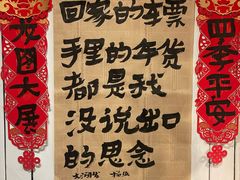 回家的车票
手里的年货
都是我
没说出口
的思念
龙图大展
四季平安